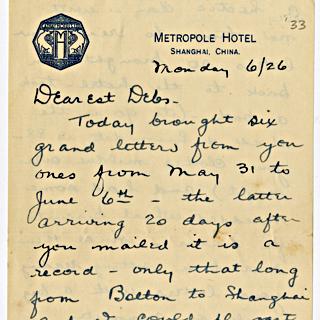 '33
METROPOLE HOTEL
SHANGHAI, CHINA.
Monday 6/26
Dearest Debs-
Today brought six
grand letters from you
ones from May 31 to
June 6th - the latter
arriving 20 days after
you mailed it is a
record - only that long
from Bolton to Shanghai